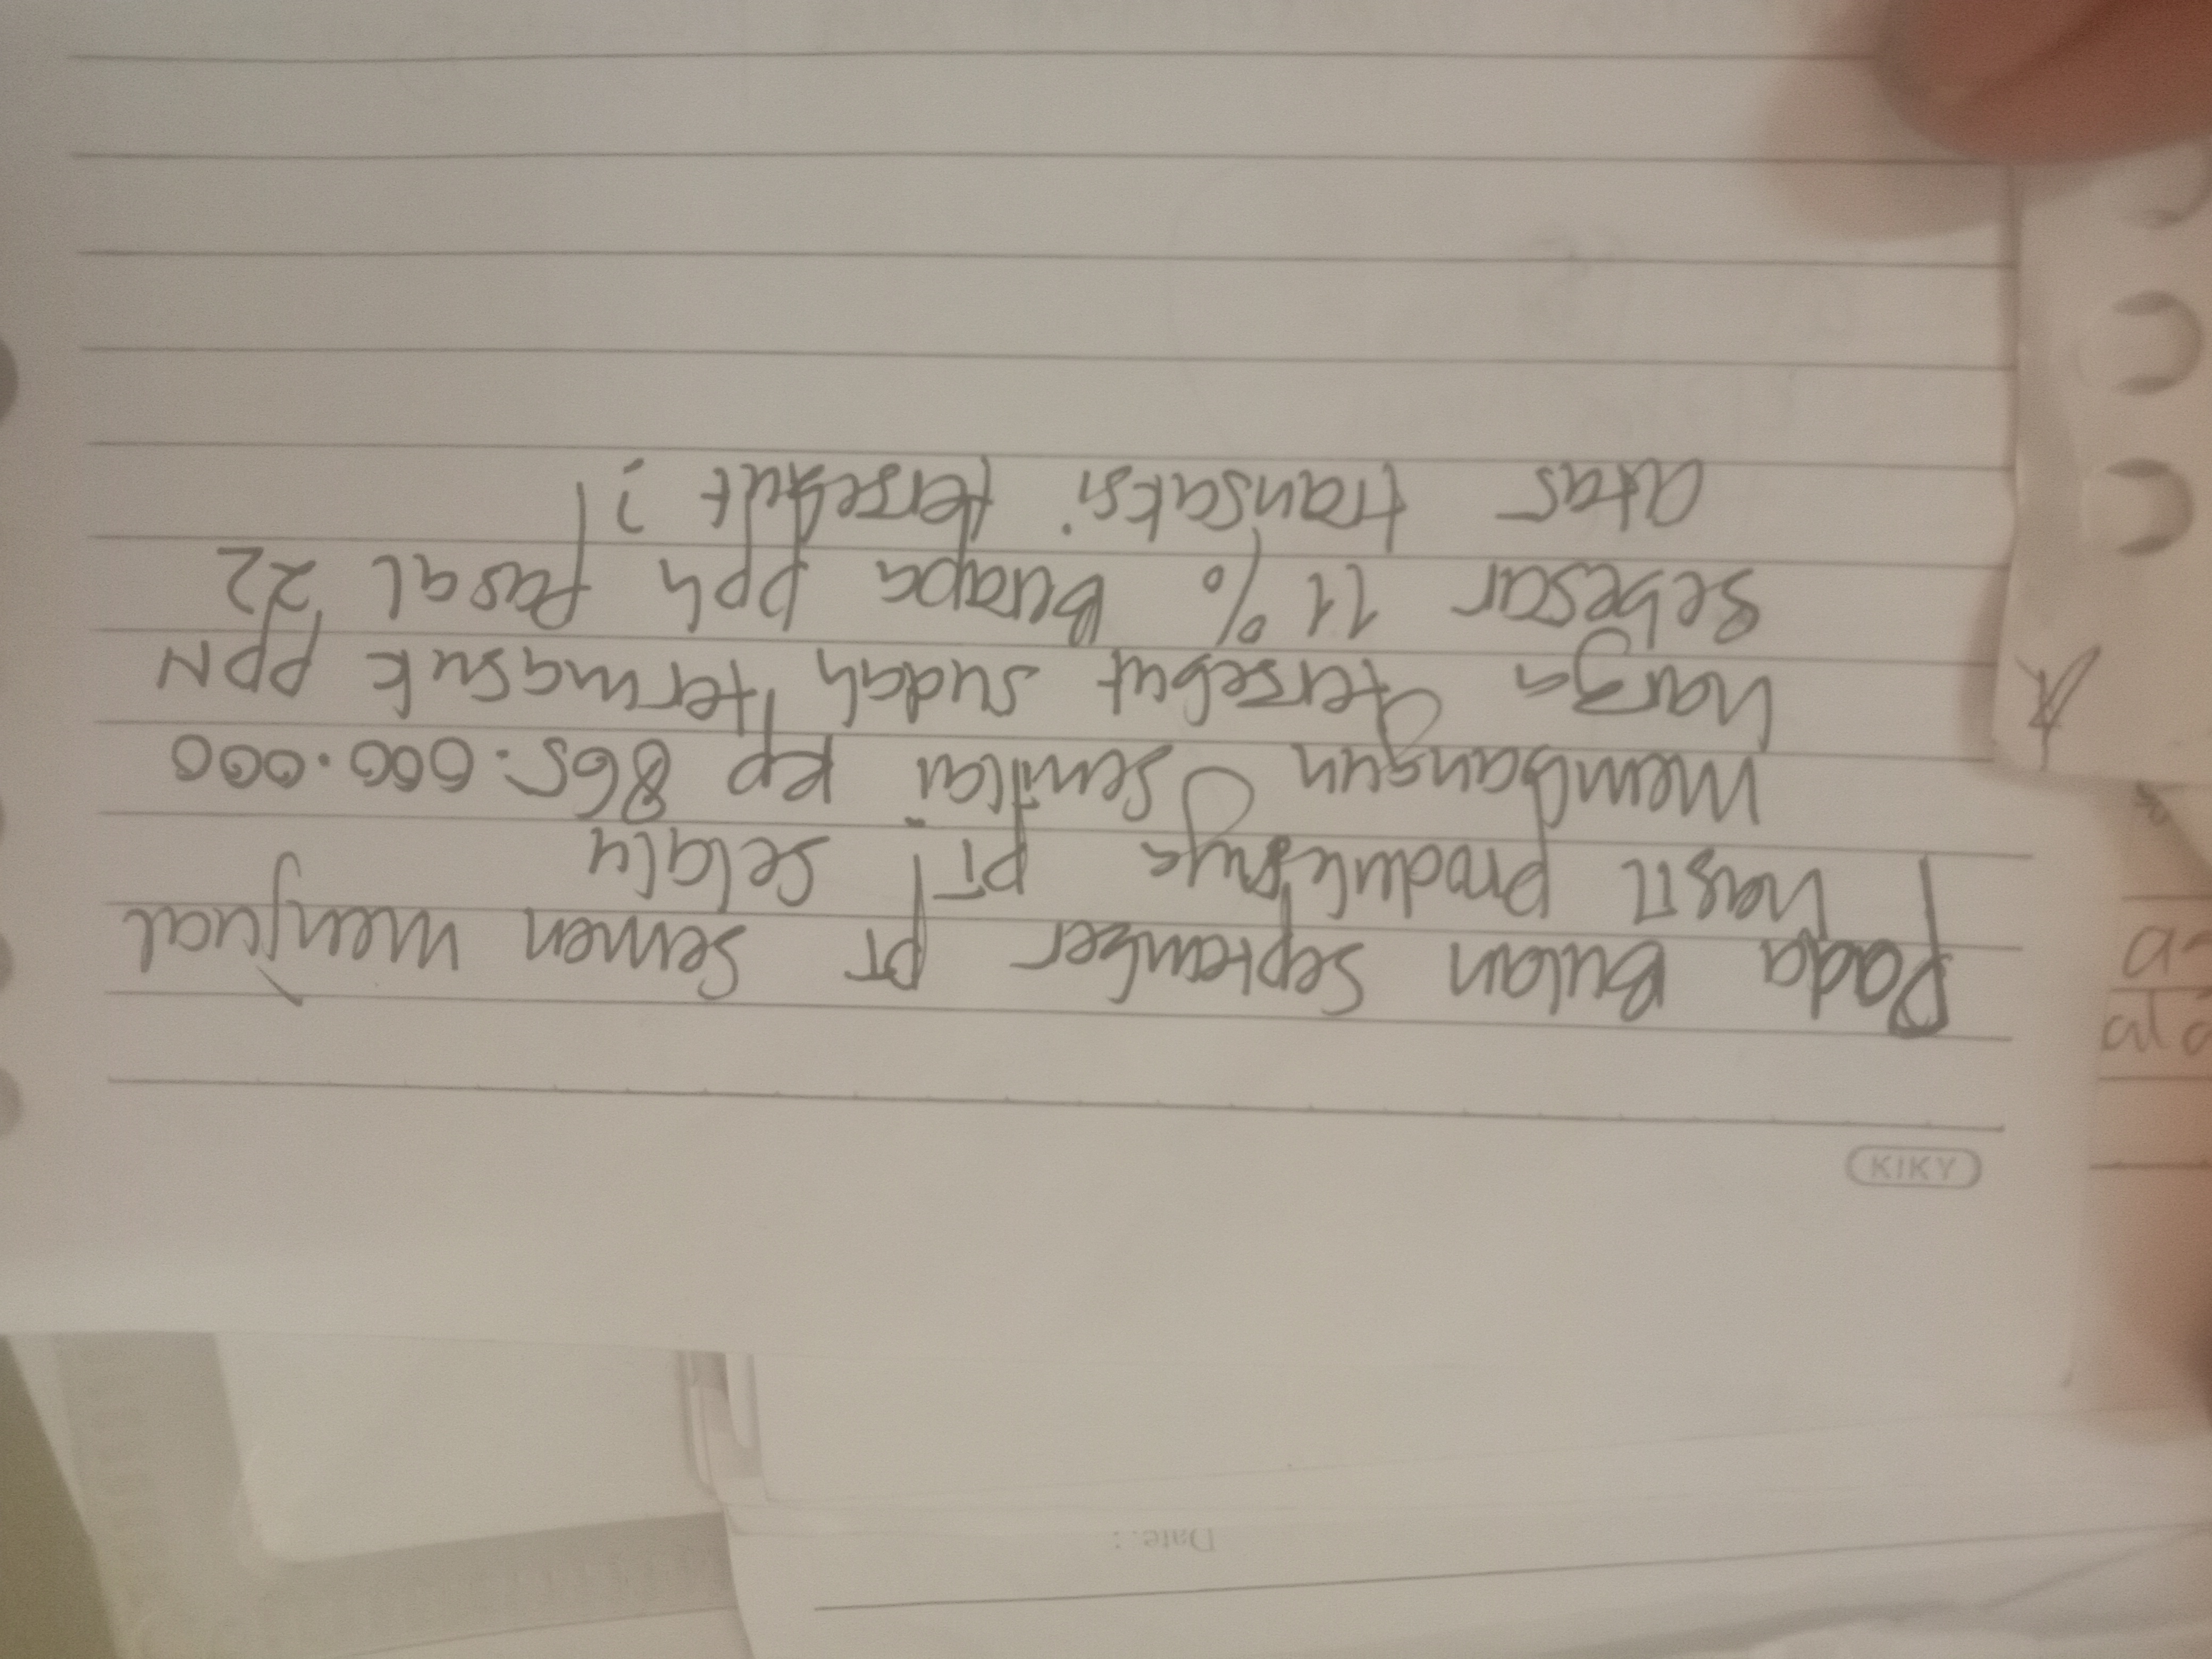 Date. :
KIKY
Pada Bulan September PT Semen menjual
hasil produksnya PT Selalu
membangun senilai Rp 865.000.000
harga tersebut sudah termasuk PPN
sebesar 11% Berapa pph pasal 22
atas transaksi tersebut ?